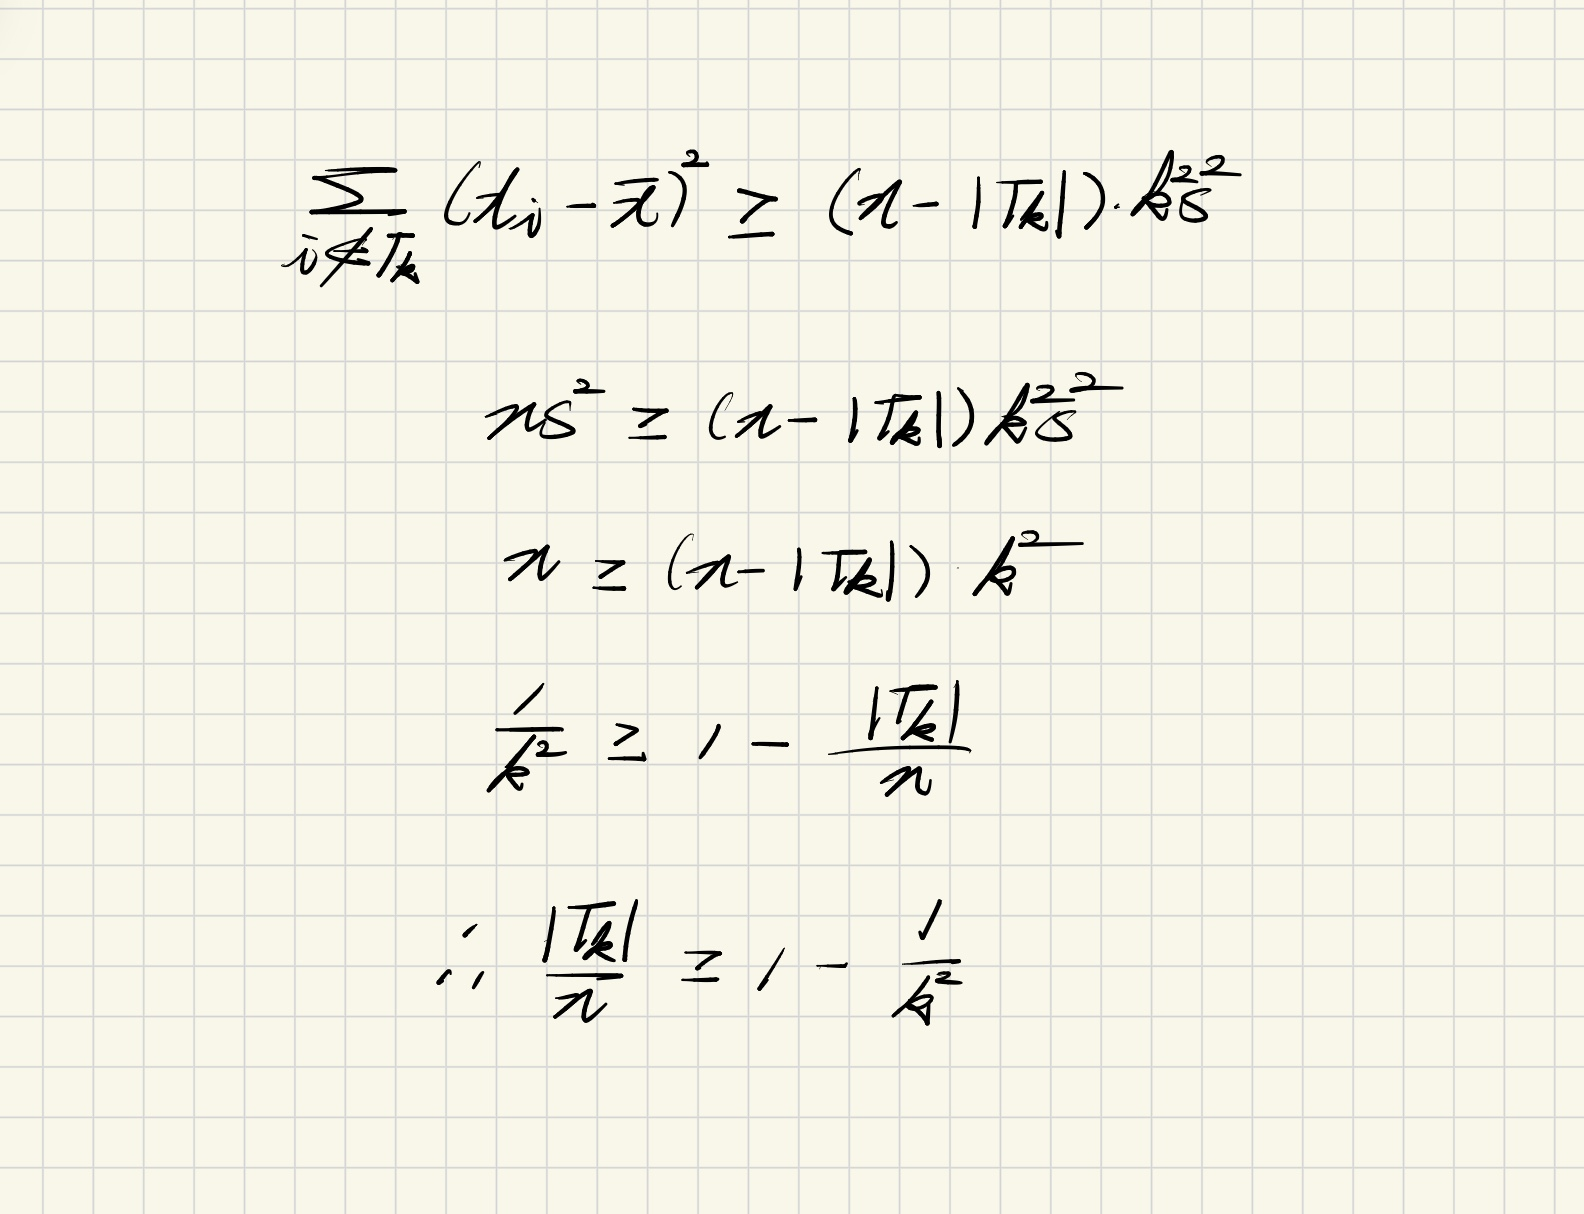 $\sum_{i \notin T_k} (x_i - \bar{x})^2 \geq (n - |T_k|) \cdot k^2 s^2$
$ns^2 \geq (n - |T_k|) k^2 s^2$
$n \geq (n - |T_k|) \cdot k^2$
$\frac{1}{k^2} \geq 1 - \frac{|T_k|}{n}$
$\therefore \frac{|T_k|}{n} \geq 1 - \frac{1}{k^2}$